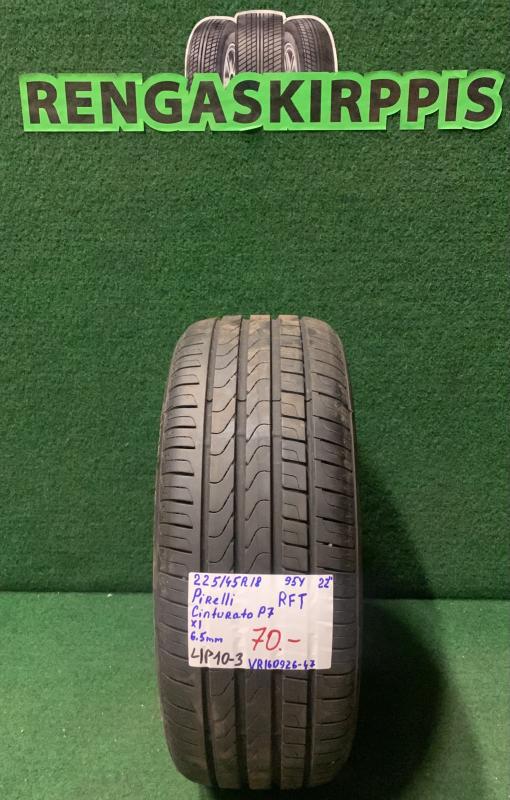 RENGASKIRPPIS
225/45R18 95Y 22"
Pirelli RFT
Cinturato P7
X1
6.5mm 70.-
4P10-3 VR160926-47